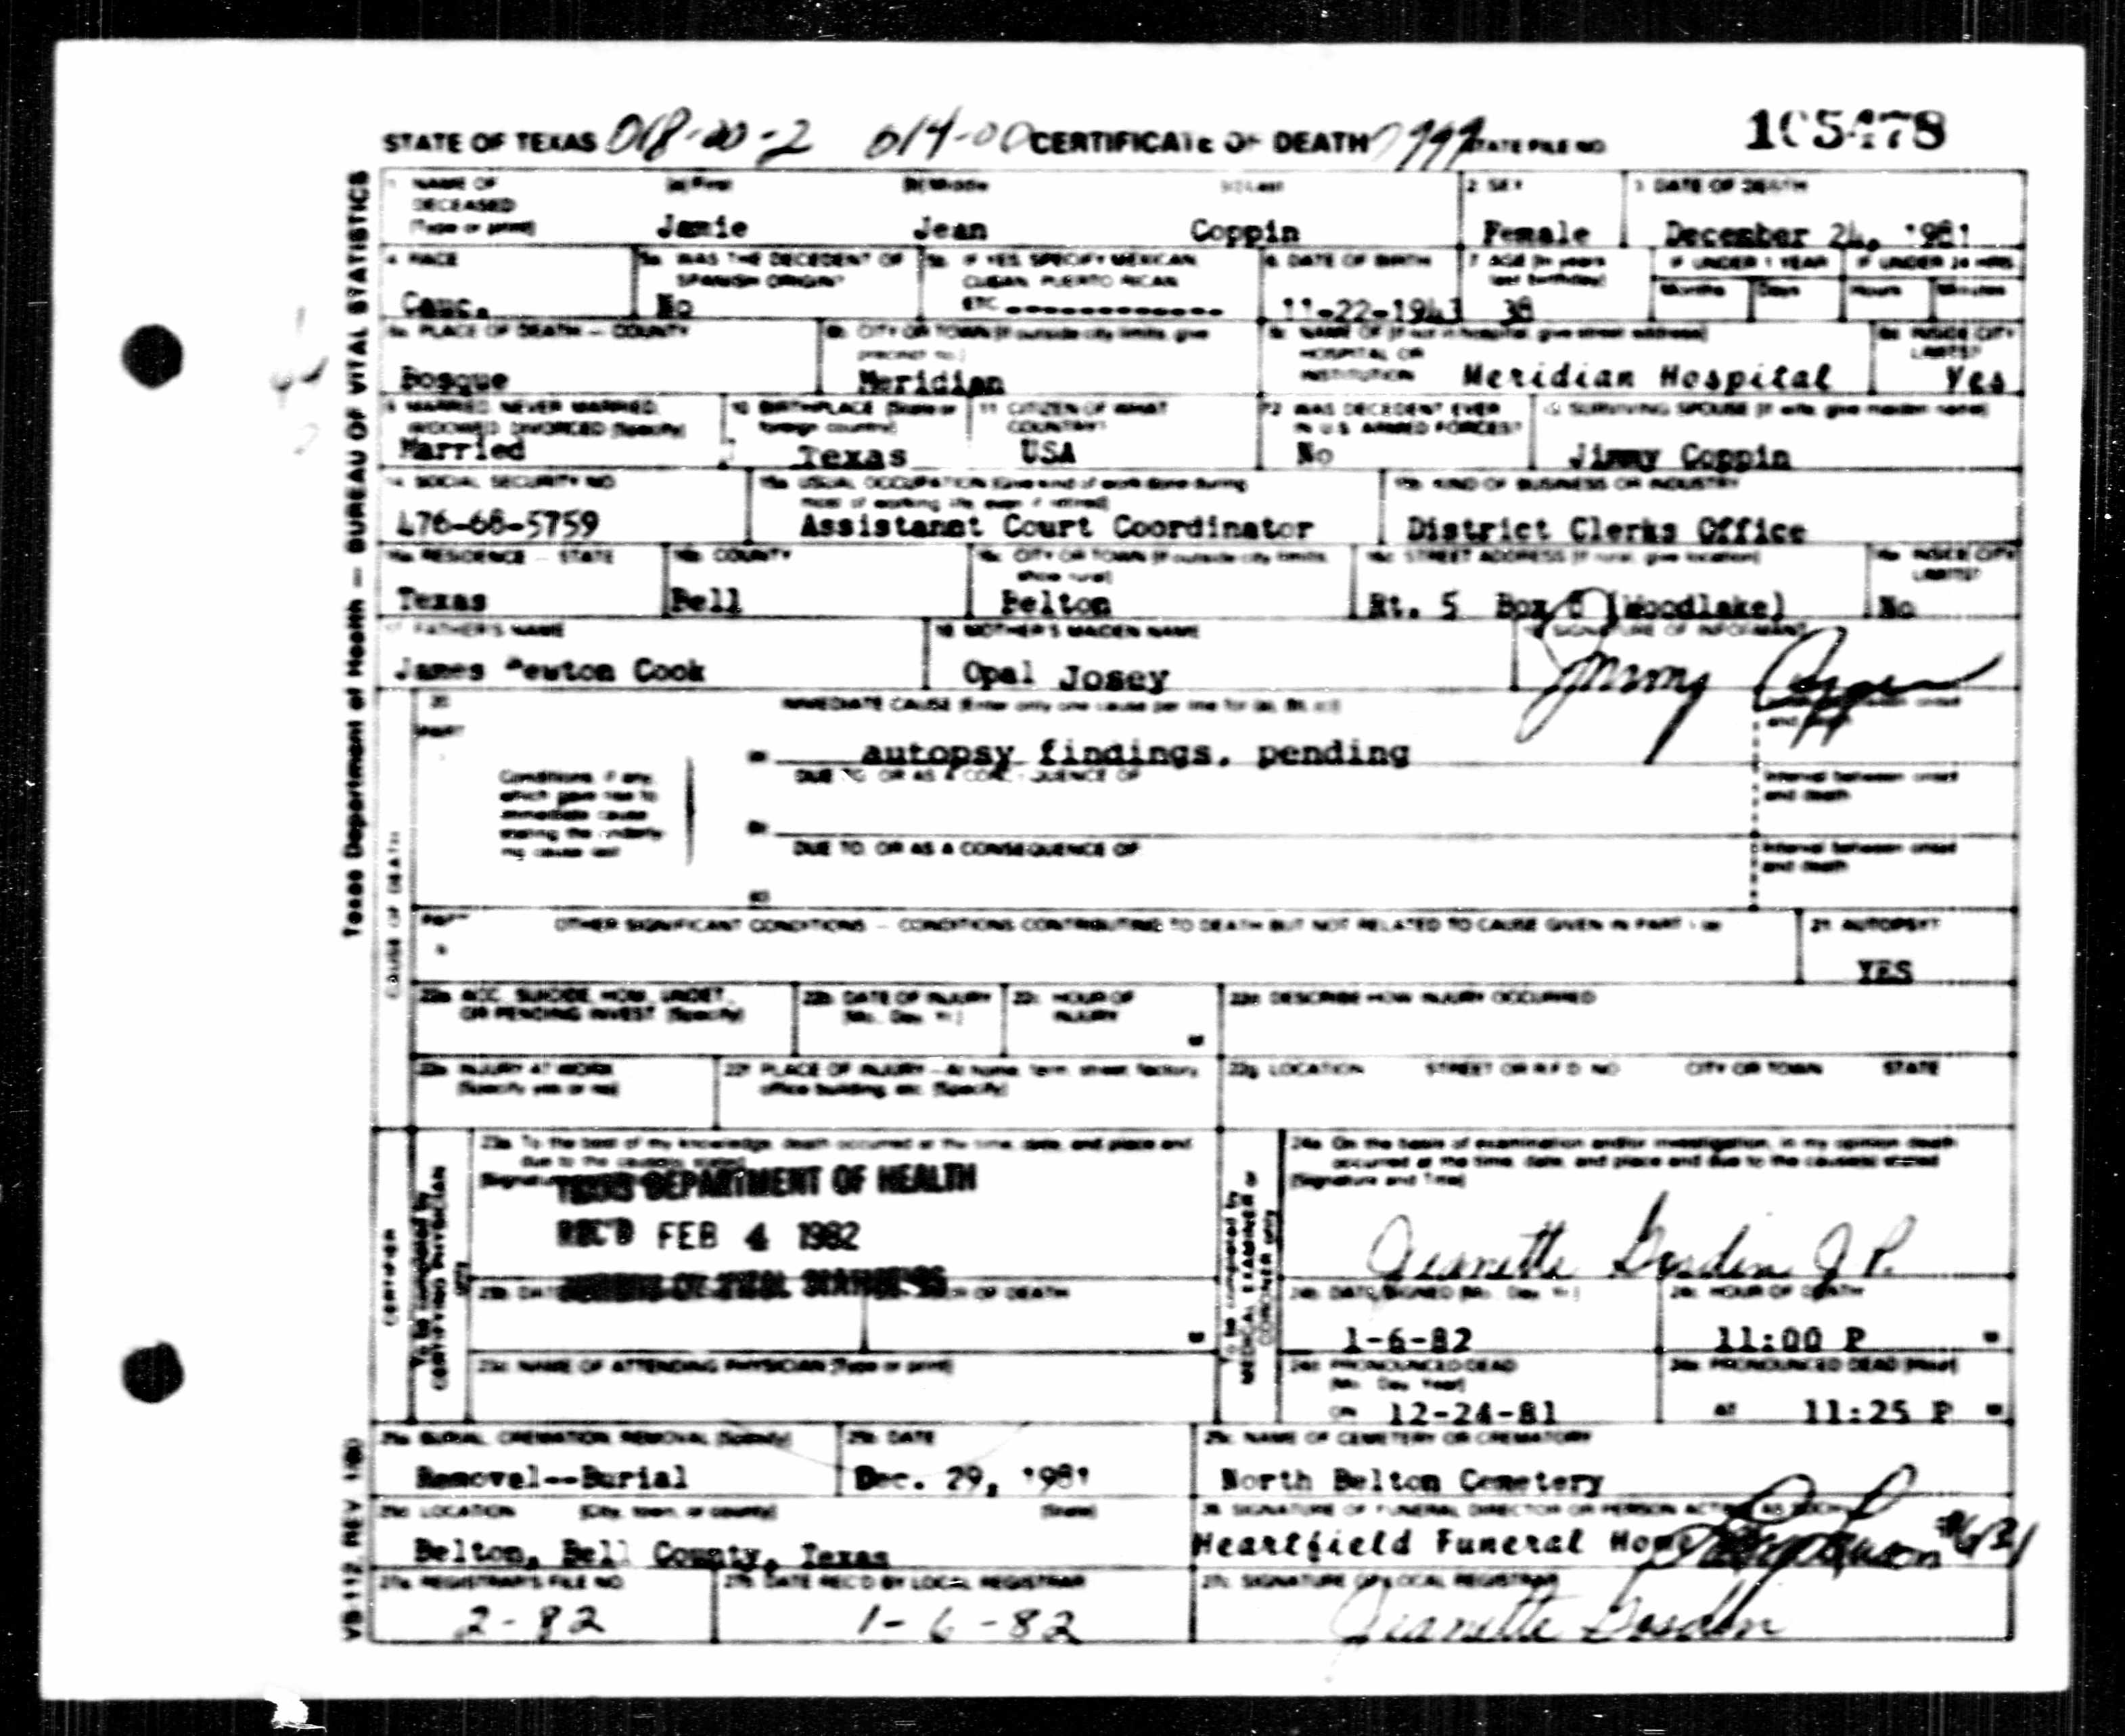 STATE OF TEXAS 018-20-2 014-00 CERTIFICATE OF DEATH 7999 STATE FILE NO. 105478
Texas Department of Health — BUREAU OF VITAL STATISTICS
1. NAME OF DECEASED (Type or print) (a) First (b) Middle (c) Last 2. SEX 3. DATE OF DEATH
Jamie Jean Coppin Female December 24, 1981
4. RACE 5a. WAS THE DECEDENT OF SPANISH ORIGIN? 5b. IF YES, SPECIFY MEXICAN, CUBAN, PUERTO RICAN, ETC. 6. DATE OF BIRTH 7. AGE (In years last birthday) IF UNDER 1 YEAR IF UNDER 24 HRS.
Months Days Hours Minutes
Cauc. No ------------- 11-22-1943 38
8a. PLACE OF DEATH — COUNTY 8b. CITY OR TOWN (If outside city limits, give precinct no.) 8c. NAME OF (If not in hospital, give street address) HOSPITAL OR INSTITUTION 8d. INSIDE CITY LIMITS?
Bosque Meridian Meridian Hospital Yes
9. MARRIED, NEVER MARRIED, WIDOWED, DIVORCED (Specify) 10. BIRTHPLACE (State or foreign country) 11. CITIZEN OF WHAT COUNTRY? 12. WAS DECEDENT EVER IN U.S. ARMED FORCES? 13. SURVIVING SPOUSE (If wife, give maiden name)
Married Texas USA No Jimmy Coppin
14. SOCIAL SECURITY NO. 15a. USUAL OCCUPATION (Give kind of work done during most of working life, even if retired) 15b. KIND OF BUSINESS OR INDUSTRY
476-68-5759 Assistanat Court Coordinator District Clerks Office
16a. RESIDENCE — STATE 16b. COUNTY 16c. CITY OR TOWN (If outside city limits, show rural) 16d. STREET ADDRESS (If rural, give location) 16e. INSIDE CITY LIMITS?
Texas Bell Belton Rt. 5 Box (Woodlake) No
17. FATHER'S NAME 18. MOTHER'S MAIDEN NAME 19. SIGNATURE OF INFORMANT
James Newton Cook Opal Josey Jimmy Coppin
20. PART IMMEDIATE CAUSE (Enter only one cause per line for (a), (b), (c))
CAUSE OF DEATH
(a) autopsy findings, pending
DUE TO, OR AS A CONSEQUENCE OF
Conditions, if any, which gave rise to immediate cause stating the underlying cause last
Interval between onset and death
(b)
DUE TO, OR AS A CONSEQUENCE OF
Interval between onset and death
(c)
PART OTHER SIGNIFICANT CONDITIONS — CONDITIONS CONTRIBUTING TO DEATH BUT NOT RELATED TO CAUSE GIVEN IN PART I (a) 21. AUTOPSY?
YES
22a. ACC., SUICIDE, HOM., UNDET., OR PENDING INVEST. (Specify) 22b. DATE OF INJURY (Mo., Day, Yr.) 22c. HOUR OF INJURY M 22d. DESCRIBE HOW INJURY OCCURRED
22e. INJURY AT WORK (Specify yes or no) 22f. PLACE OF INJURY — At home, farm, street, factory, office building, etc. (Specify) 22g. LOCATION STREET OR R.F.D. NO. CITY OR TOWN STATE
CERTIFIER
To be completed by CERTIFYING PHYSICIAN only
23a. To the best of my knowledge, death occurred at the time, date, and place and due to the cause(s) stated
TEXAS DEPARTMENT OF HEALTH
REC'D FEB 4 1982
BUREAU OF VITAL STATISTICS
23d. NAME OF ATTENDING PHYSICIAN (Type or print)
To be completed by MEDICAL EXAMINER or CORONER only
24a. On the basis of examination and/or investigation, in my opinion death occurred at the time, date, and place and due to the cause(s) stated
(Signature and Title)
Jeanette Gosdin J.P.
24b. DATE SIGNED (Mo., Day, Yr.) 24c. HOUR OF DEATH
1-6-82 11:00 P M
24d. PRONOUNCED DEAD (Mo., Day, Year) 24e. PRONOUNCED DEAD (Hour)
ON 12-24-81 AT 11:25 P M
25a. BURIAL, CREMATION, REMOVAL (Specify) 25b. DATE 25c. NAME OF CEMETERY OR CREMATORY
Removel--Burial Dec. 29, 1981 North Belton Cemetery
25d. LOCATION (City, town, or county) (State) 26. SIGNATURE OF FUNERAL DIRECTOR OR PERSON ACTING AS SUCH
Belton, Bell County, Texas Heartfield Funeral Home
27a. REGISTRAR'S FILE NO. 27b. DATE REC'D BY LOCAL REGISTRAR 27c. SIGNATURE OF LOCAL REGISTRAR
2-82 1-6-82 Jeanette Gosdin
VS-112 REV. 1/80